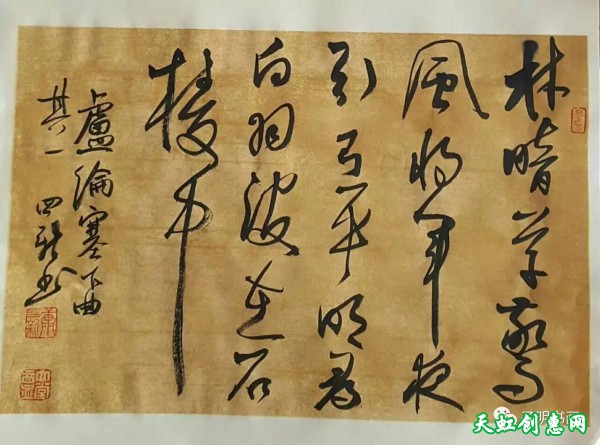 林暗草驚
風將軍夜
引弓平明尋
白羽没在石
棱中
盧綸塞下曲
其一
天虹创惠网